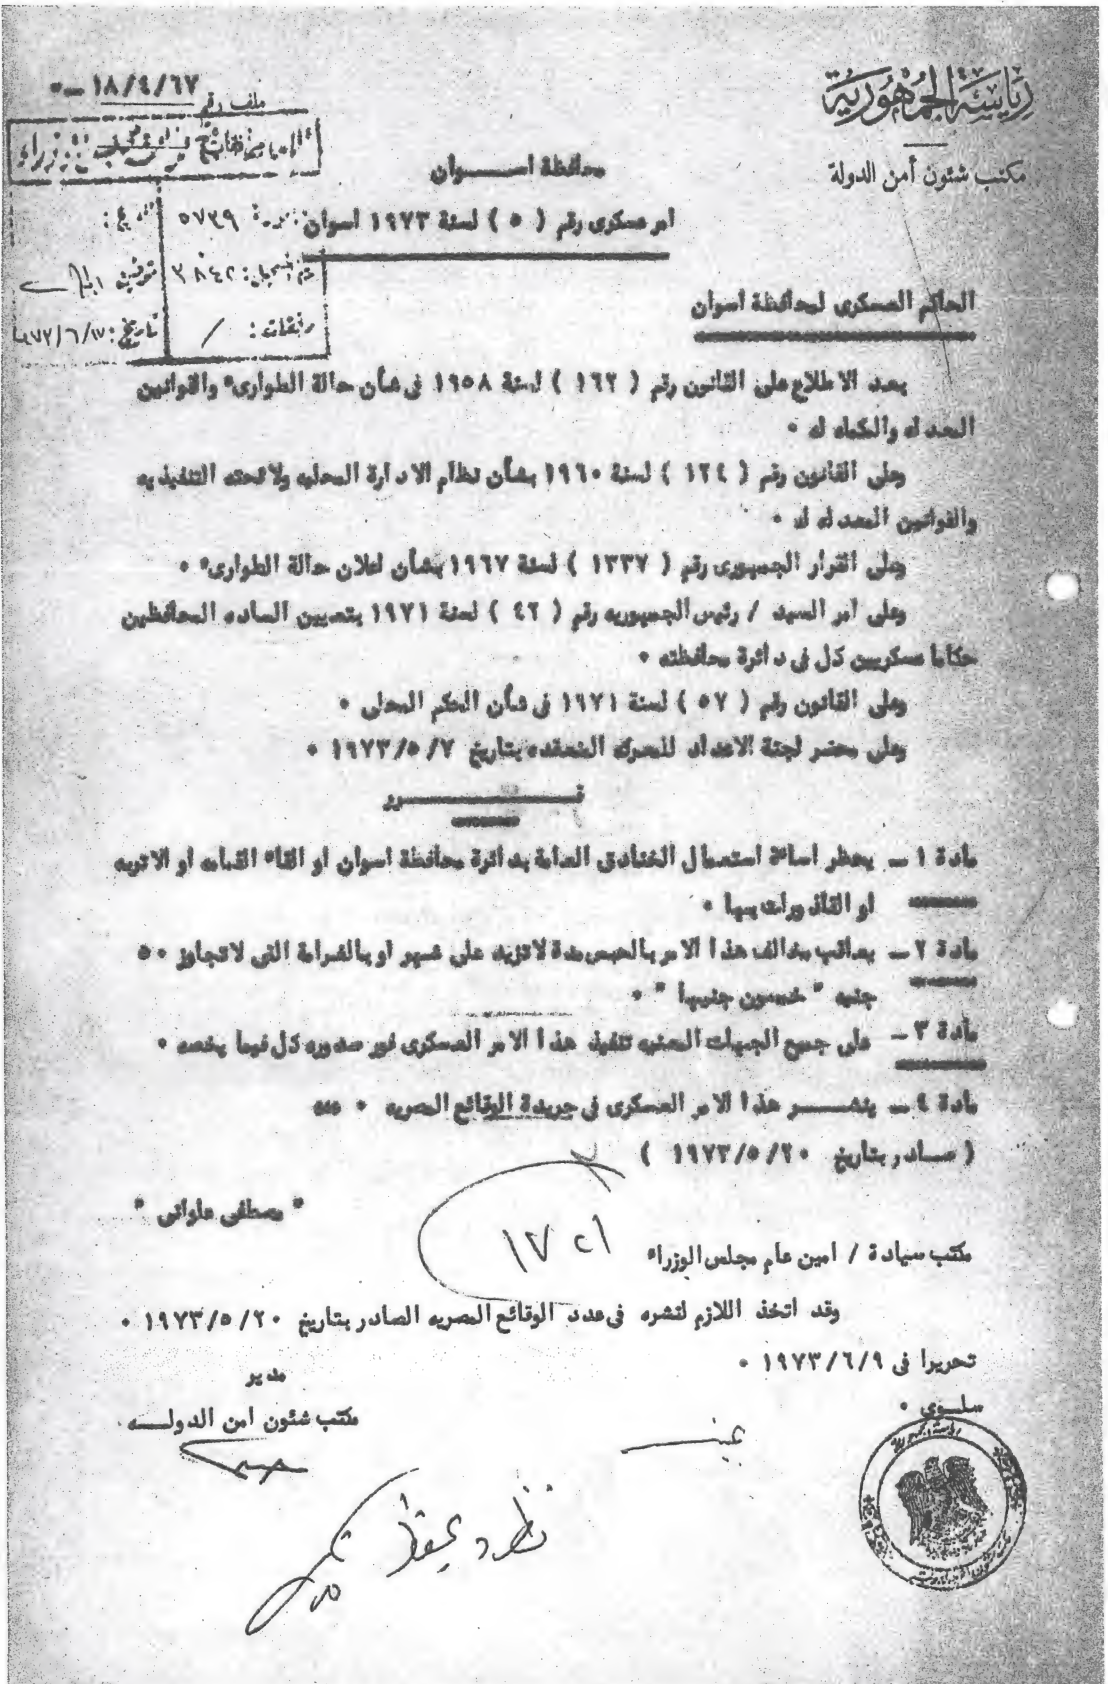 رياسة الجمهورية
مكتب شئون أمن الدولة
ملف رقم ١٨/٤/٦٧ ــ
٥٧٣٩
رقم التسجيل : ٣٨٤٢
مرفقات : /
تاريخ : ١٩٧٣/٦/١٧
محافظة اســـوان
امر عسكرى رقم ( ٥ ) لسنة ١٩٧٣ اسوان
الحاكم العسكرى لمحافظة اسوان
بعد الاطلاع على القانون رقم ( ١٦٢ ) لسنة ١٩٥٨ فى شأن حالة الطوارىء والقوانين
المعدله والمكمله له ٠
وعلى القانون رقم ( ١٢٤ ) لسنة ١٩٦٠ بشأن نظام الادارة المحليه ولائحته التنفيذيه
والقوانين المعدله له ٠
وعلى القرار الجمهورى رقم ( ١٣٣٧ ) لسنة ١٩٦٧ بشأن اعلان حالة الطوارىء ٠
وعلى امر السيد / رئيس الجمهوريه رقم ( ٤٢ ) لسنة ١٩٧١ بتعيين الساده المحافظين
حكاما عسكريين كل فى دائرة محافظته ٠
وعلى القانون رقم ( ٥٧ ) لسنة ١٩٧١ فى شأن الحكم المحلى ٠
وعلى محضر لجنة الاعداد للمعركه المنعقده بتاريخ ١٩٧٣/٥/٧ ٠
قـــــــرر
مادة ١ ــ يحظر اساءة استعمال الخنادق العامة بدائرة محافظة اسوان او القاء القمامه او الاتربه
او القاذورات بها ٠
مادة ٢ ــ يعاقب مخالف هذا الامر بالحبس مدة لاتزيد على شهر او بالغرامة التى لاتجاوز ٥٠
جنيه " خمسون جنيها " ٠
مادة ٣ ــ على جميع الجهات المعنيه تنفيذ هذا الامر العسكرى فور صدوره كل فيما يخصه ٠
مادة ٤ ــ ينشـــر هذا الامر العسكرى فى جريدة الوقائع المصريه ٠
( صــادر بتاريخ ١٩٧٣/٥/٢٠ )
" مصطفى علوانى "
مكتب سيادة / امين عام مجلس الوزراء
وقد اتخذ اللازم لنشره فى عدد الوقائع المصريه الصادر بتاريخ ١٩٧٣/٥/٢٠ ٠
تحريرا فى ١٩٧٣/٦/٩ ٠
مدير
مكتب شئون امن الدولــه
سلـوى ٠